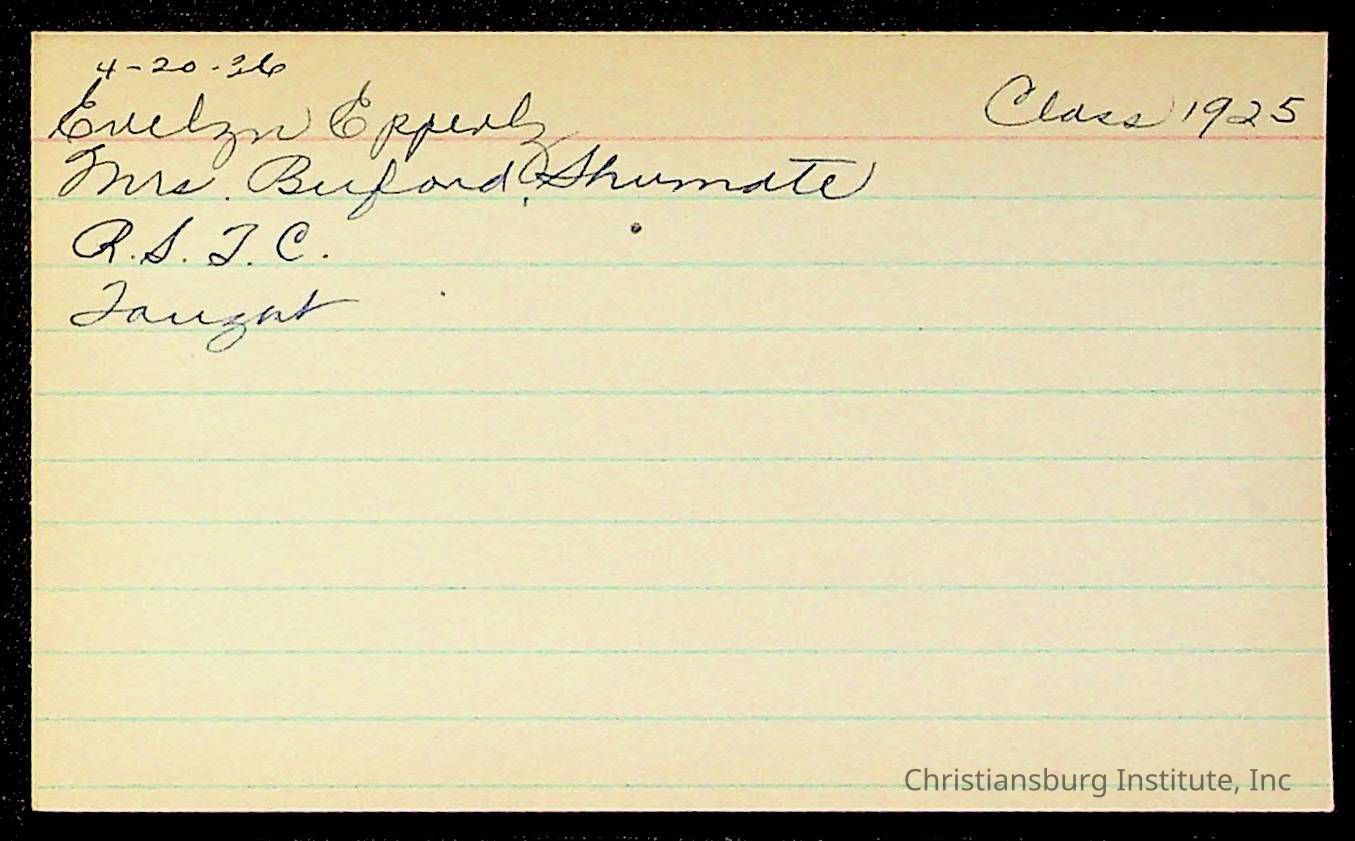 4-20-36
Evelyn Epperly Class 1925
Mrs. Buford Shumate
R.S.T.C.
Taught
Christiansburg Institute, Inc